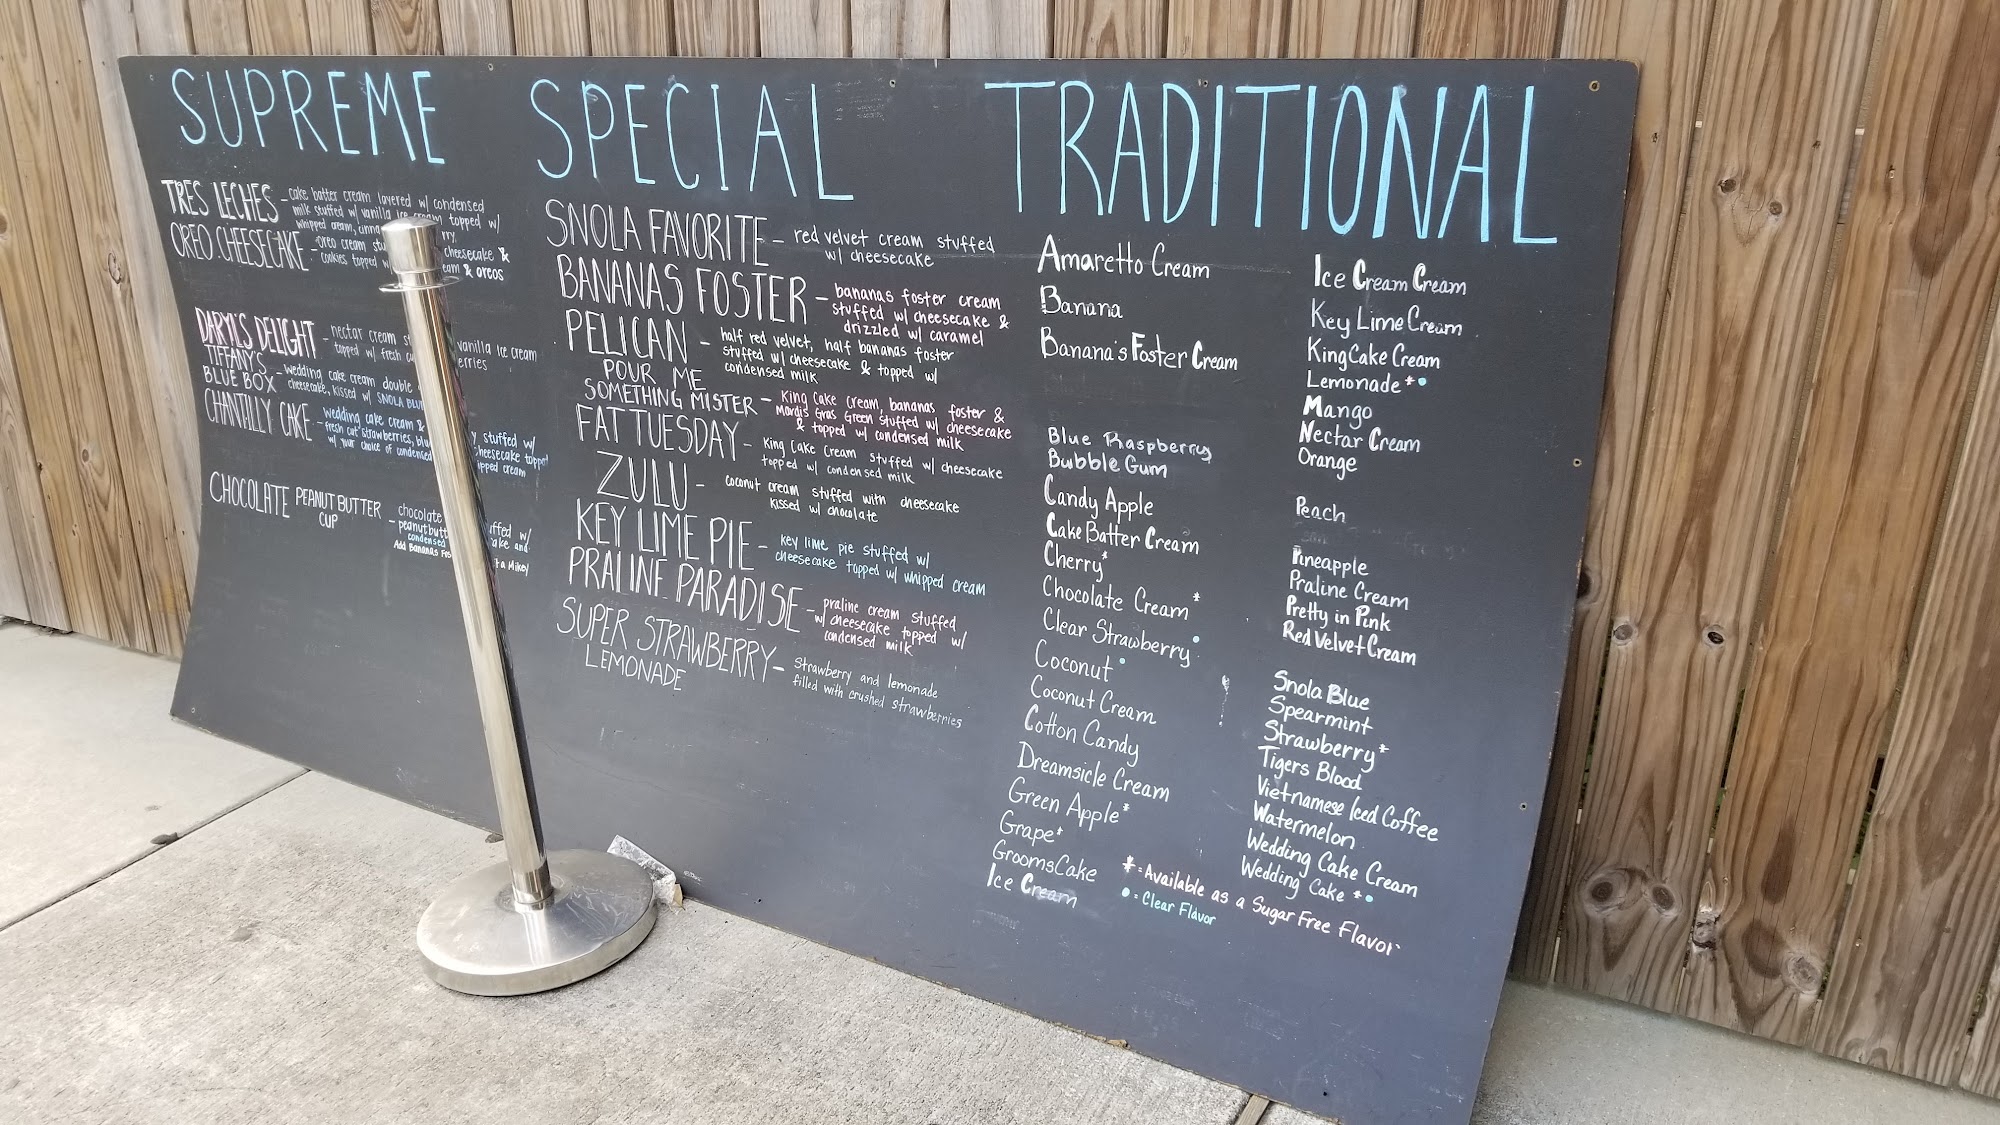 SUPREME
TRES LECHES - cake batter cream layered w/ condensed
milk stuffed w/ vanilla ice cream topped w/
whipped cream,
OREO CHEESECAKE - oreo cream cheesecake &
cookies topped & oreos
DARYL'S DELIGHT - nectar cream vanilla ice cream
topped w/ fresh
TIFFANY'S
BLUE BOX - wedding cake cream double
cheesecake, kissed w/ SNOLA BLUE
CHANTILLY CAKE - wedding cake cream & stuffed w/
fresh cut strawberries, cheesecake topped
w/ your choice of condensed
CHOCOLATE PEANUT BUTTER
CUP - chocolate
condensed and
Add Bananas Mikey
SPECIAL
SNOLA FAVORITE - red velvet cream stuffed
w/ cheesecake
BANANAS FOSTER - bananas foster cream
stuffed w/ cheesecake &
drizzled w/ caramel
PELICAN - half red velvet, half bananas foster
stuffed w/ cheesecake & topped w/
condensed milk
POUR ME
SOMETHING MISTER - King Cake cream, bananas foster &
Mardis Gras Green stuffed w/ cheesecake
& topped w/ condensed milk
FAT TUESDAY - King Cake Cream stuffed w/ cheesecake
topped w/ condensed milk
ZULU - coconut cream stuffed with cheesecake
kissed w/ chocolate
KEY LIME PIE - key lime pie stuffed w/
cheesecake topped w/ whipped cream
PRALINE PARADISE - praline cream stuffed
w/ cheesecake topped w/
condensed milk
SUPER STRAWBERRY
LEMONADE - strawberry and lemonade
filled with crushed strawberries
TRADITIONAL
Amaretto Cream
Banana
Banana's Foster Cream
Blue Raspberry
Bubble Gum
Candy Apple
Cake Batter Cream
Cherry*
Chocolate Cream*
Clear Strawberry•
Coconut•
Coconut Cream
Cotton Candy
Dreamsicle Cream
Green Apple*
Grape*
GroomsCake
Ice Cream
Ice Cream Cream
Key Lime Cream
KingCake Cream
Lemonade*•
Mango
Nectar Cream
Orange
Peach
Pineapple
Praline Cream
Pretty in Pink
Red Velvet Cream
Snola Blue
Spearmint
Strawberry*
Tigers Blood
Vietnamese Iced Coffee
Watermelon
Wedding Cake Cream
Wedding Cake*•
* = Available as a Sugar Free Flavor
• = Clear Flavor